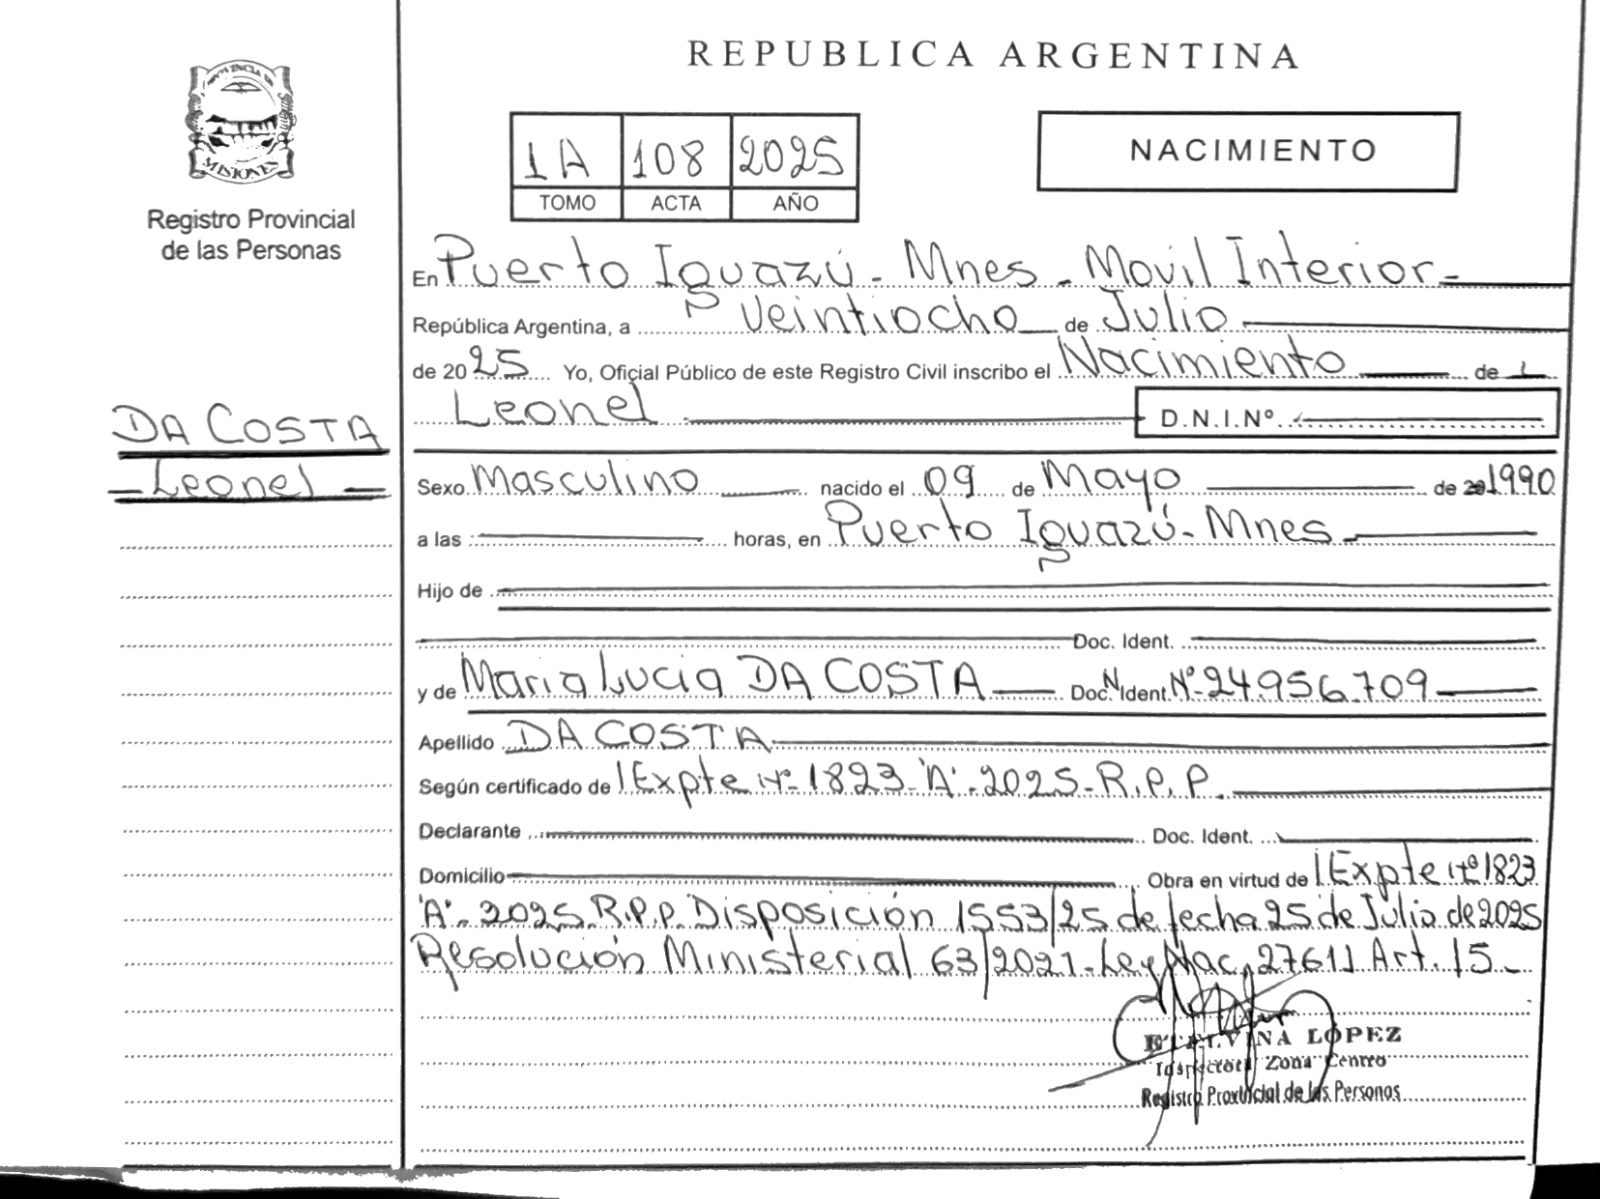 REPUBLICA ARGENTINA
PROVINCIA DE
MISIONES
Registro Provincial
de las Personas
1A 108 2025
TOMO ACTA AÑO
NACIMIENTO
En Puerto Iguazú - Mnes - Movil Interior -
República Argentina, a Veintiocho de Julio
de 20 25 Yo, Oficial Público de este Registro Civil inscribo el Nacimiento de
Leonel D.N.I.Nº
DA COSTA
Leonel
Sexo Masculino nacido el 09 de Mayo de 1990
a las horas, en Puerto Iguazú - Mnes
Hijo de
Doc. Ident.
y de Maria Lucia DA COSTA Doc. Ident. Nº 24.956.709
Apellido DA COSTA
Según certificado de Expte Nº 1823-"A"-2025-R.P.P.
Declarante Doc. Ident.
Domicilio Obra en virtud de Expte Nº 1823
"A"-2025-R.P.P. Disposición 1553/25 de fecha 25 de Julio de 2025
Resolución Ministerial 63/2021 - Ley Nac. 27611 Art. 15-
ETELVINA LÓPEZ
Inspectora Zona Centro
Registro Provincial de las Personas